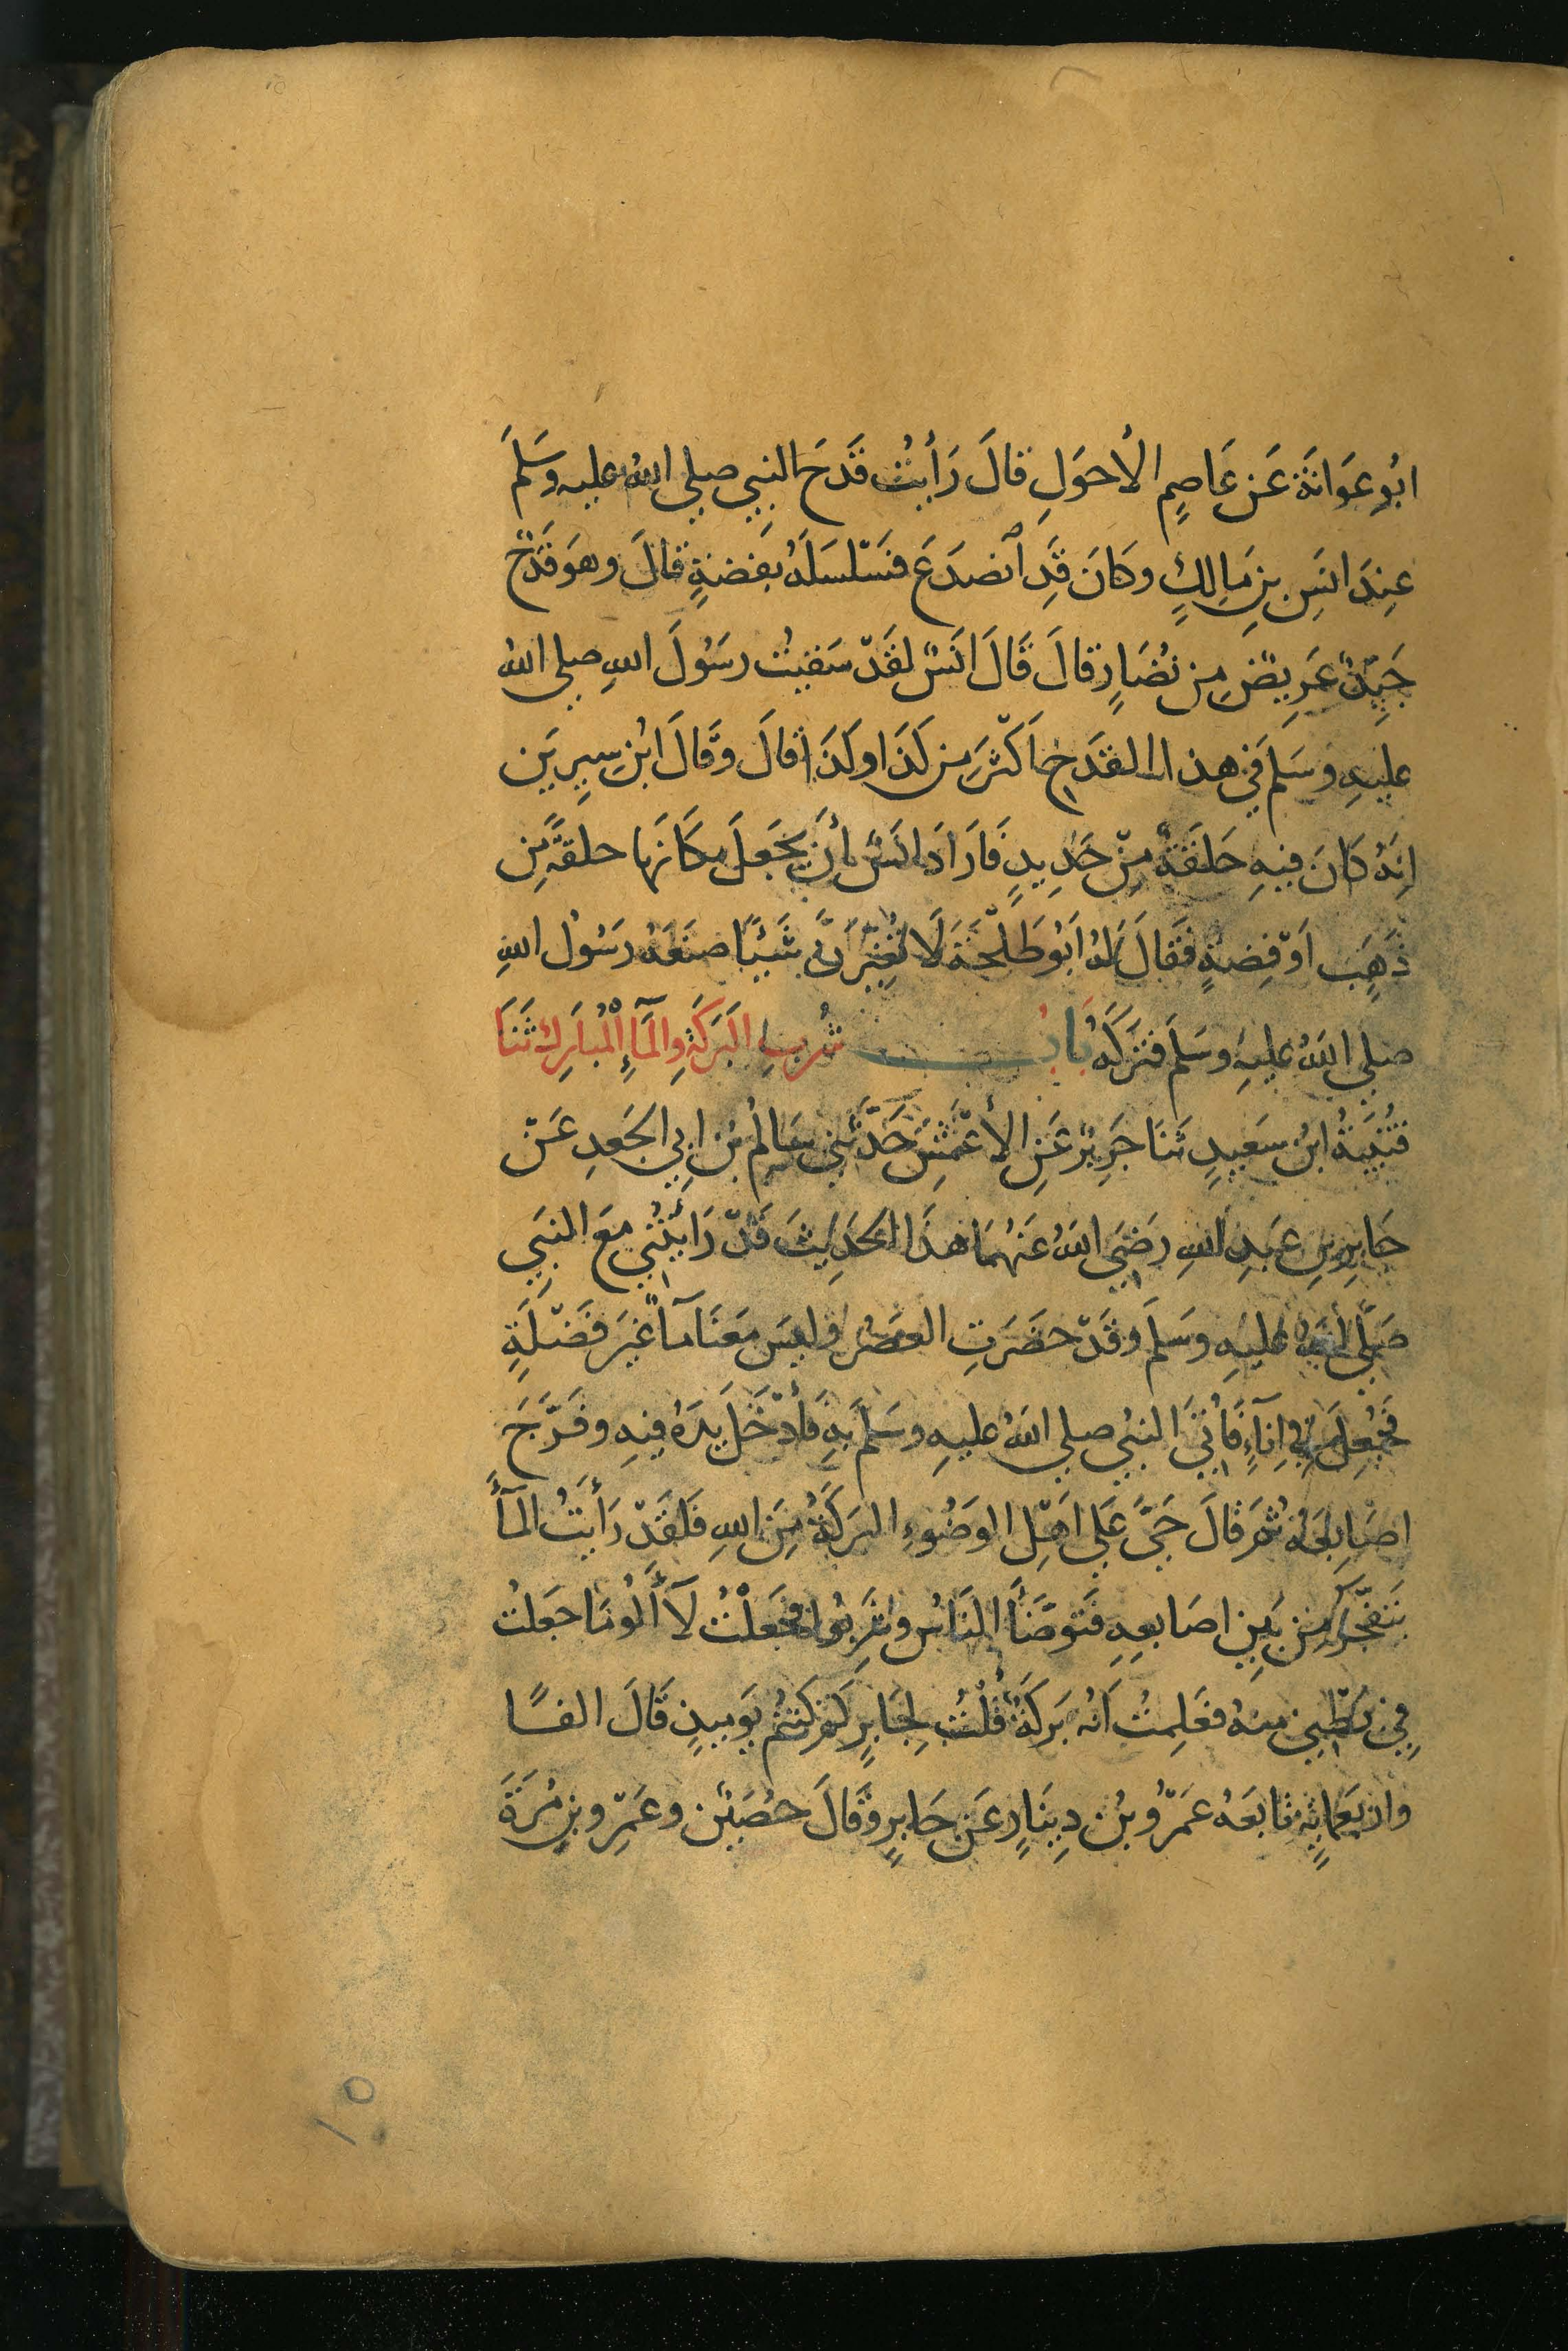 ابُو عَوَانَةَ عَن عَاصِمٍ الأحوَلِ قالَ رَأيْتُ قَدَحَ النبِي صلي اللهُ عليه وسَلمَ
عِندَ انَسِ بنِ مَالِكٍ وكَانَ قَدِ اَنصَدَعَ فسَلْسَلَهُ بفِضةٍ قالَ وهوَ قَدَحٌ
جَيِّدٌ عَرِيضٌ مِن نُضَارٍ قالَ قَالَ انَسٌ لقَدْ سَقيتُ رسَولَ اللهِ صلي اللهُ
عليهِ وسَلمَ في هذا القدَحِ اَكْثرَ مِن كَذا وكَذا قالَ وقَالَ ابنُ سِيرِين
انهُ كانَ فيهِ حَلقَةٌ مِنْ حَدِيدٍ فَارَادَ انَسٌ أن يَجعَلَ مكَانَها حلقةً مِن
ذَهبٍ اَوْ فِضةٍ فقَالَ لهُ ابُو طَلْحَةَ لَا تُغِيّرَنَّ شَيْئًا صنَعَهُ رسَولُ اللهِ
صلي اللهُ عليهِ وسَلمَ فتَرَكَهُ بَابُ شُربِ البَرَكَةِ والمَآءِ المُبَارَكِ ثَنَا
قُتَيبَةُ ابنُ سعَيدٍ ثنَا جَرِيرٌ عَنِ الأَعْمَشِ حَدَّثَني سَالِمُ بنُ ابِي الجَعدِ عَنْ
جَابِرِ بنِ عَبدِ اللهِ رَضيَ اللهُ عَنهُمَا هذَا الحَدِيثَ قَدْ رَايْتُني معَ النبِي
صَلَّى اللهُ عليهِ وسَلمَ وقَدْ حضَرَتِ العَصرُ وليسَ مَعَنَا مَآءٌ غيَرَ فَضْلَةٍ
فجُعِلَ في اِنَآءٍ فَأُتيَ النبِي صلي اللهُ عليهِ وسَلمَ بهِ فَأَدْخَلَ يدَهُ فيهِ وفَرَّجَ
اصَابِعَهُ ثُمَ قالَ حَيَّ عَلي اَهْلِ الوَضُوءِ البَرَكَةُ مِنَ اللهِ فَلقَدْ رَأَيتُ المَآءَ
يَتَفَجَّرُ مِن بَينِ اصَابعِهِ فتَوضَّأَ النَاسُ وشَرِبُوا فجَعَلْتُ لآ أَلُو مَا جعَلتُ
فِي بَطْنِي منهُ فعَلِمتُ انهُ بَرَكَةٌ قُلْتُ لِجَابِرٍ كَم كُنتُم يَوميِذٍ قَالَ الفًا
واربعَمايةٍ تابَعَهُ عَمْرُو بنُ دِينَارٍ عَن جَابِرٍ وقَالَ حصَينٌ وعَمْرِو بنِ مُرَةَ